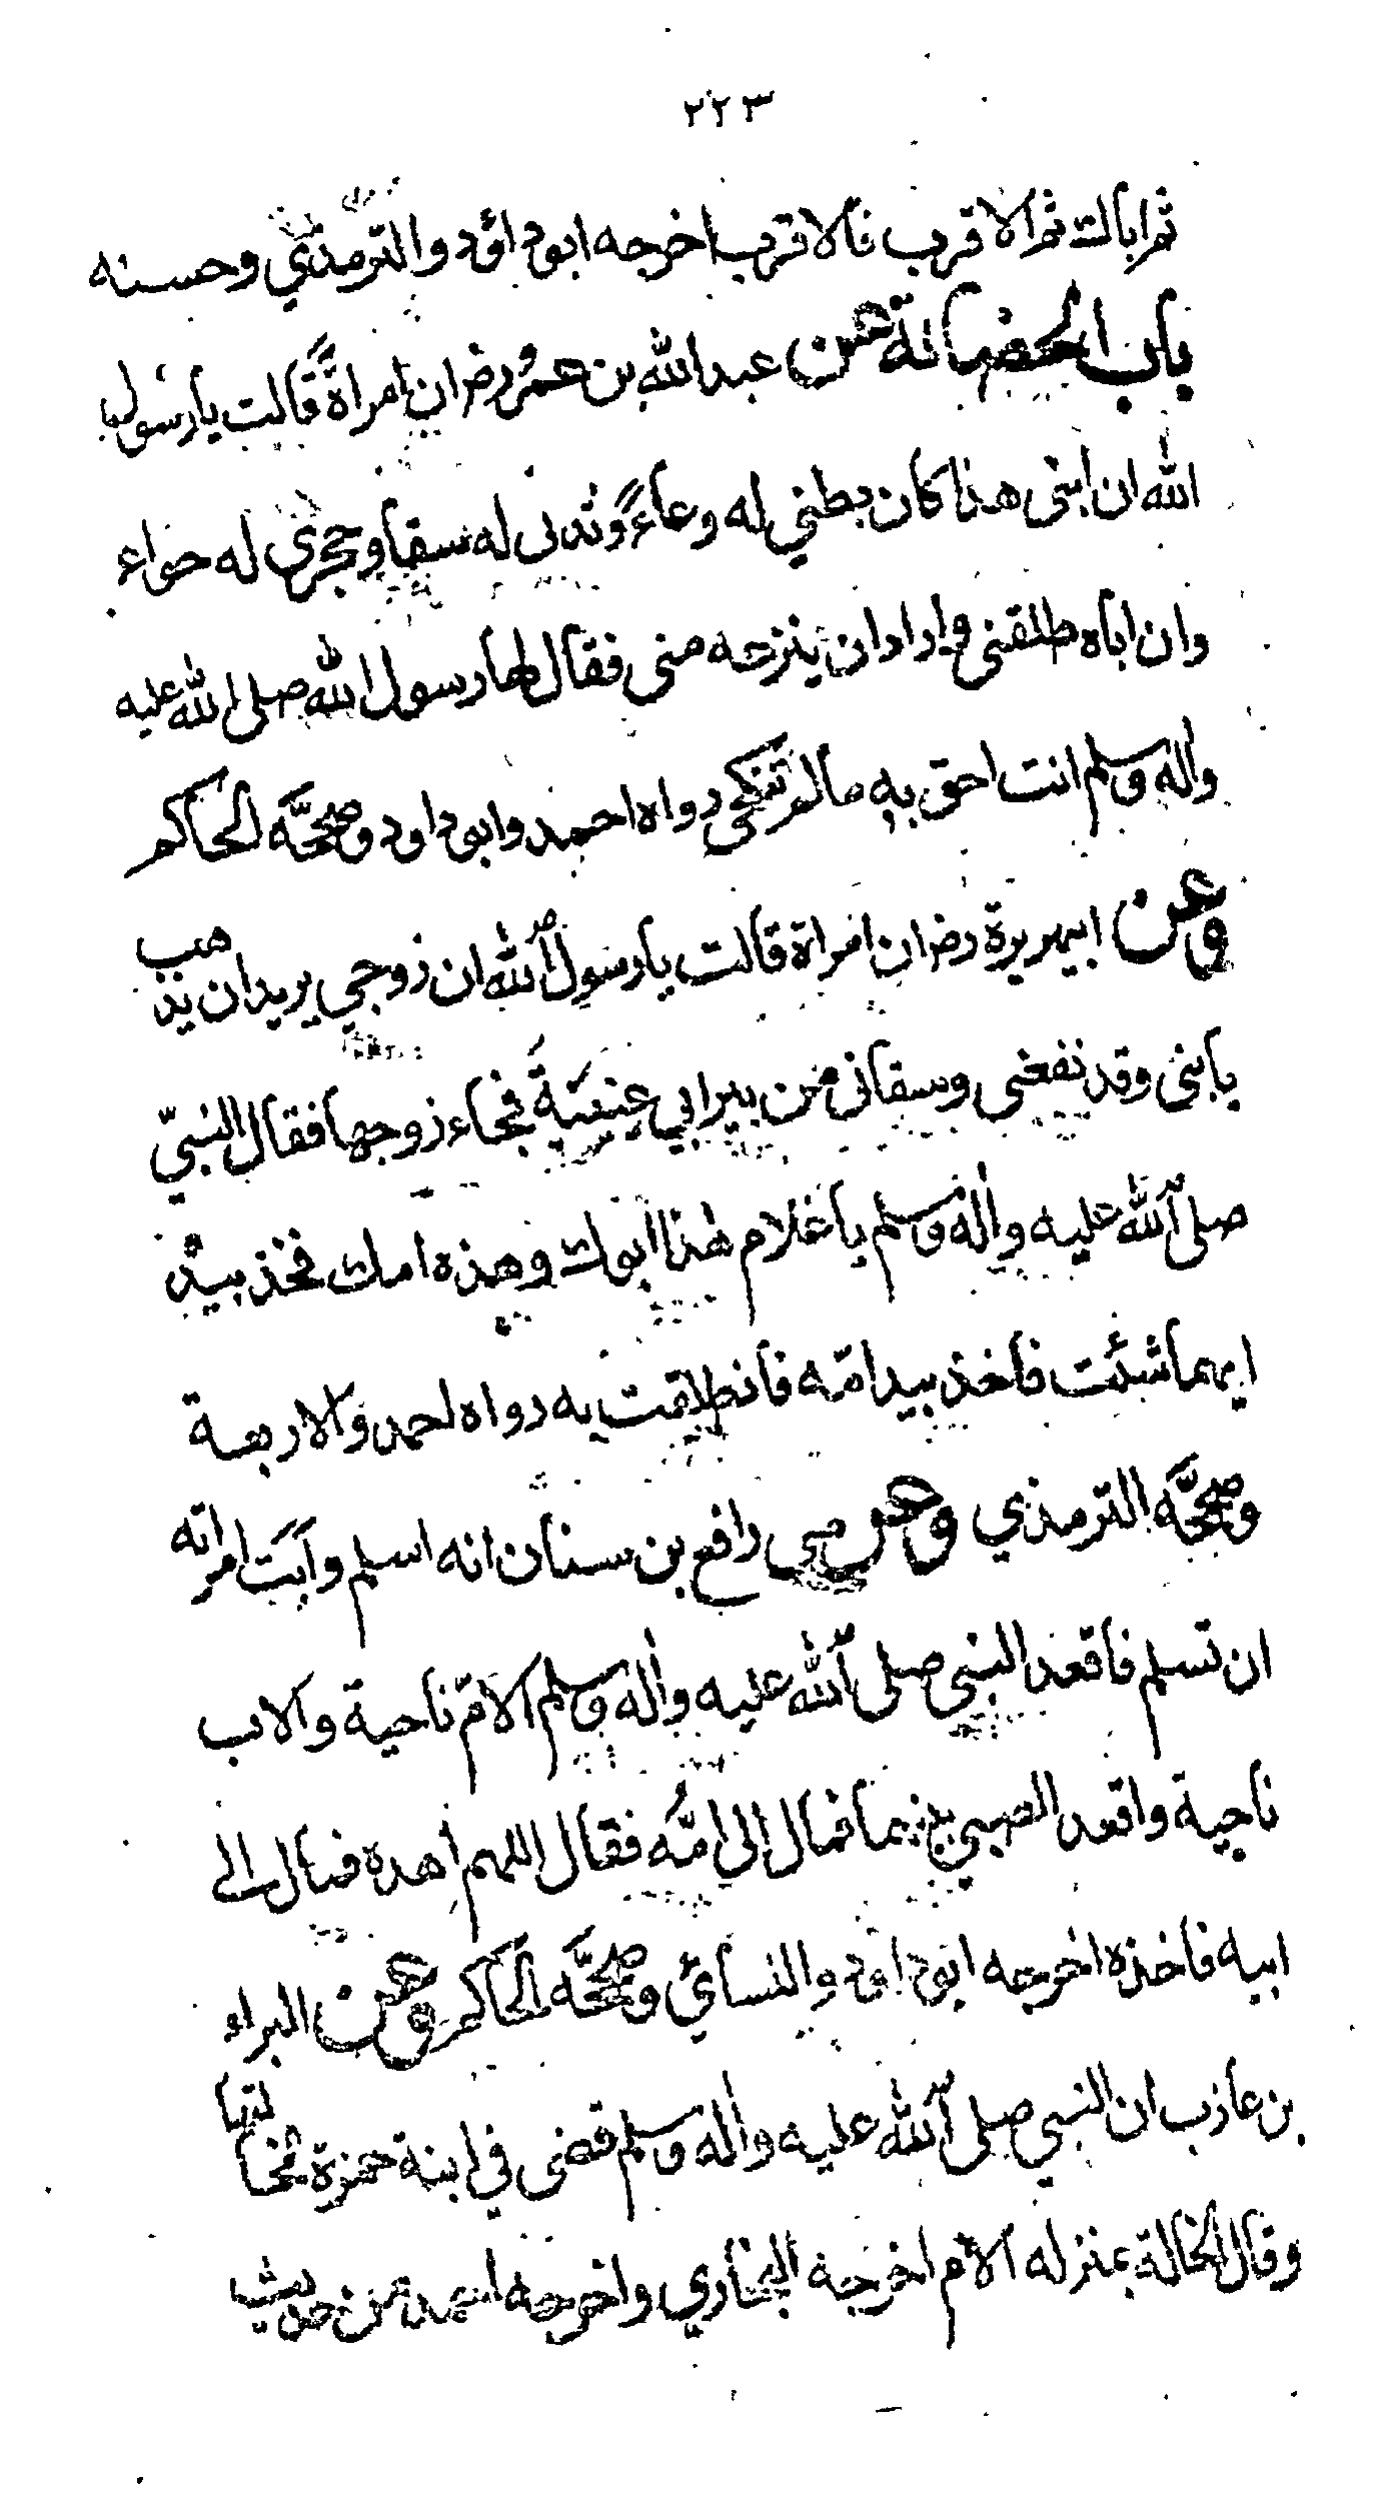 ٢٢٣
ثم اباك ثم الاقرب فالاقرب اخرجه ابوداؤد والترمذي وحسنه
باب الحضانة عن عبدالله بن عمرو رض ان امراة قالت يا رسول
الله ان ابنى هذا كان بطني له وعاءً وثدىى له سقا وحجرى له حواء
وان اباه طلقنى واراد ان ينزعه منى فقال لها رسول الله صلى الله عليه
واله وسلم انت احق به ما لم تنكحى رواه احمد وابوداود وصححّه الحاكم
وعن ابيهريرة رض ان امراة قالت يا رسول الله ان زوجي يريد ان يذهب
بابنى وقد نفعنى وسقانى من بير ابي عنبَةَ فجاء زوجها فقال النبيّ
صلى الله عليه واله وسلم يا غلام هذا ابوك وهذه امك فخذ بيد
ايهما شئت فاخذ بيد امّه فانطلقت به رواه احمد والاربعة
وصححّه الترمذي وعن رافع بن سنان انه اسلم وابَت امراته
ان تسلم فاقعد النبي صلى الله عليه واله وسلم الامّ ناحية والاب
ناحية واقعد الصبي بينهما فمال الى امّه فقال اللهم اهده فمال الى
ابيه فاخذه اخرجه ابوداود والنسائي وصححّه الحاكم وعن البراء
بن عازب ان النبي صلى الله عليه واله وسلم قضى في ابنة حمزة لخالتها
وقال الخالة بمنزله الام اخرجه البخاري واخرجه احمد من حديث